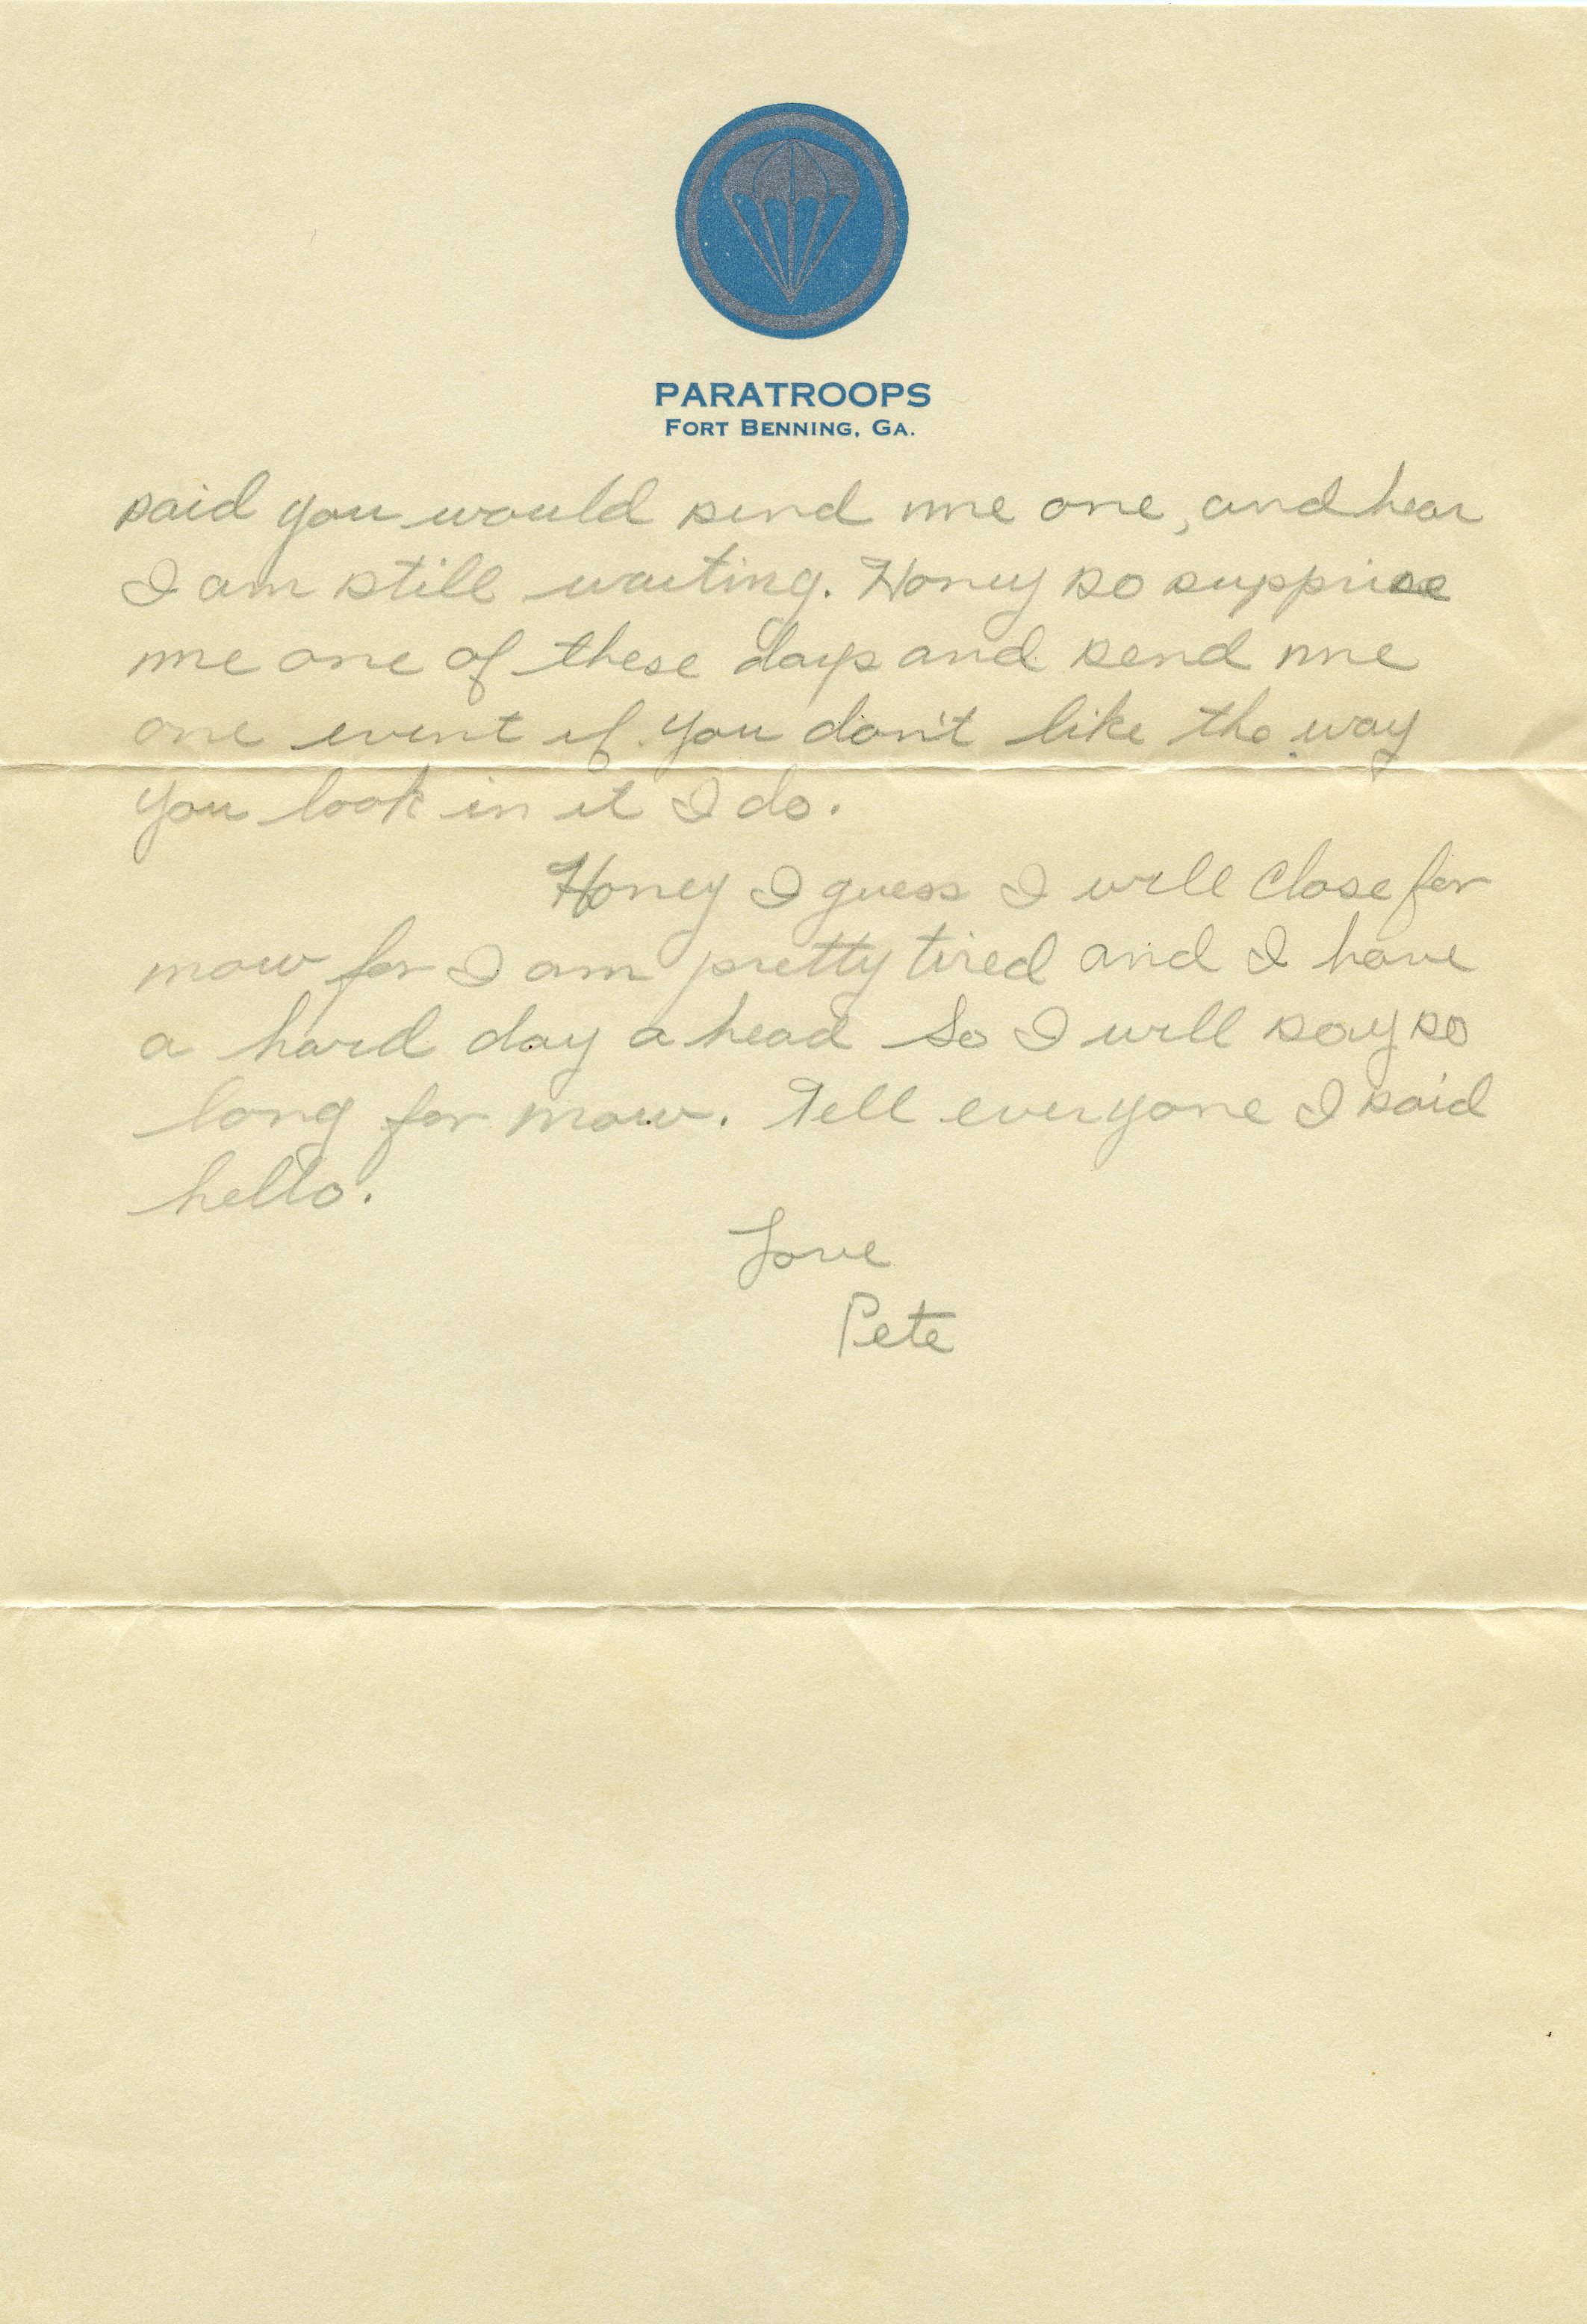 PARATROOPS
FORT BENNING, GA.
said you would send me one, and hear
I am still waiting. Honey so supprise
me one of these days and send me
one event if you don't like the way
you look in it I do.
Honey I guess I will close for
now for I am pretty tired and I have
a hard day a head So I will say so
long for now. Tell everyone I said
hello.
Love
Pete